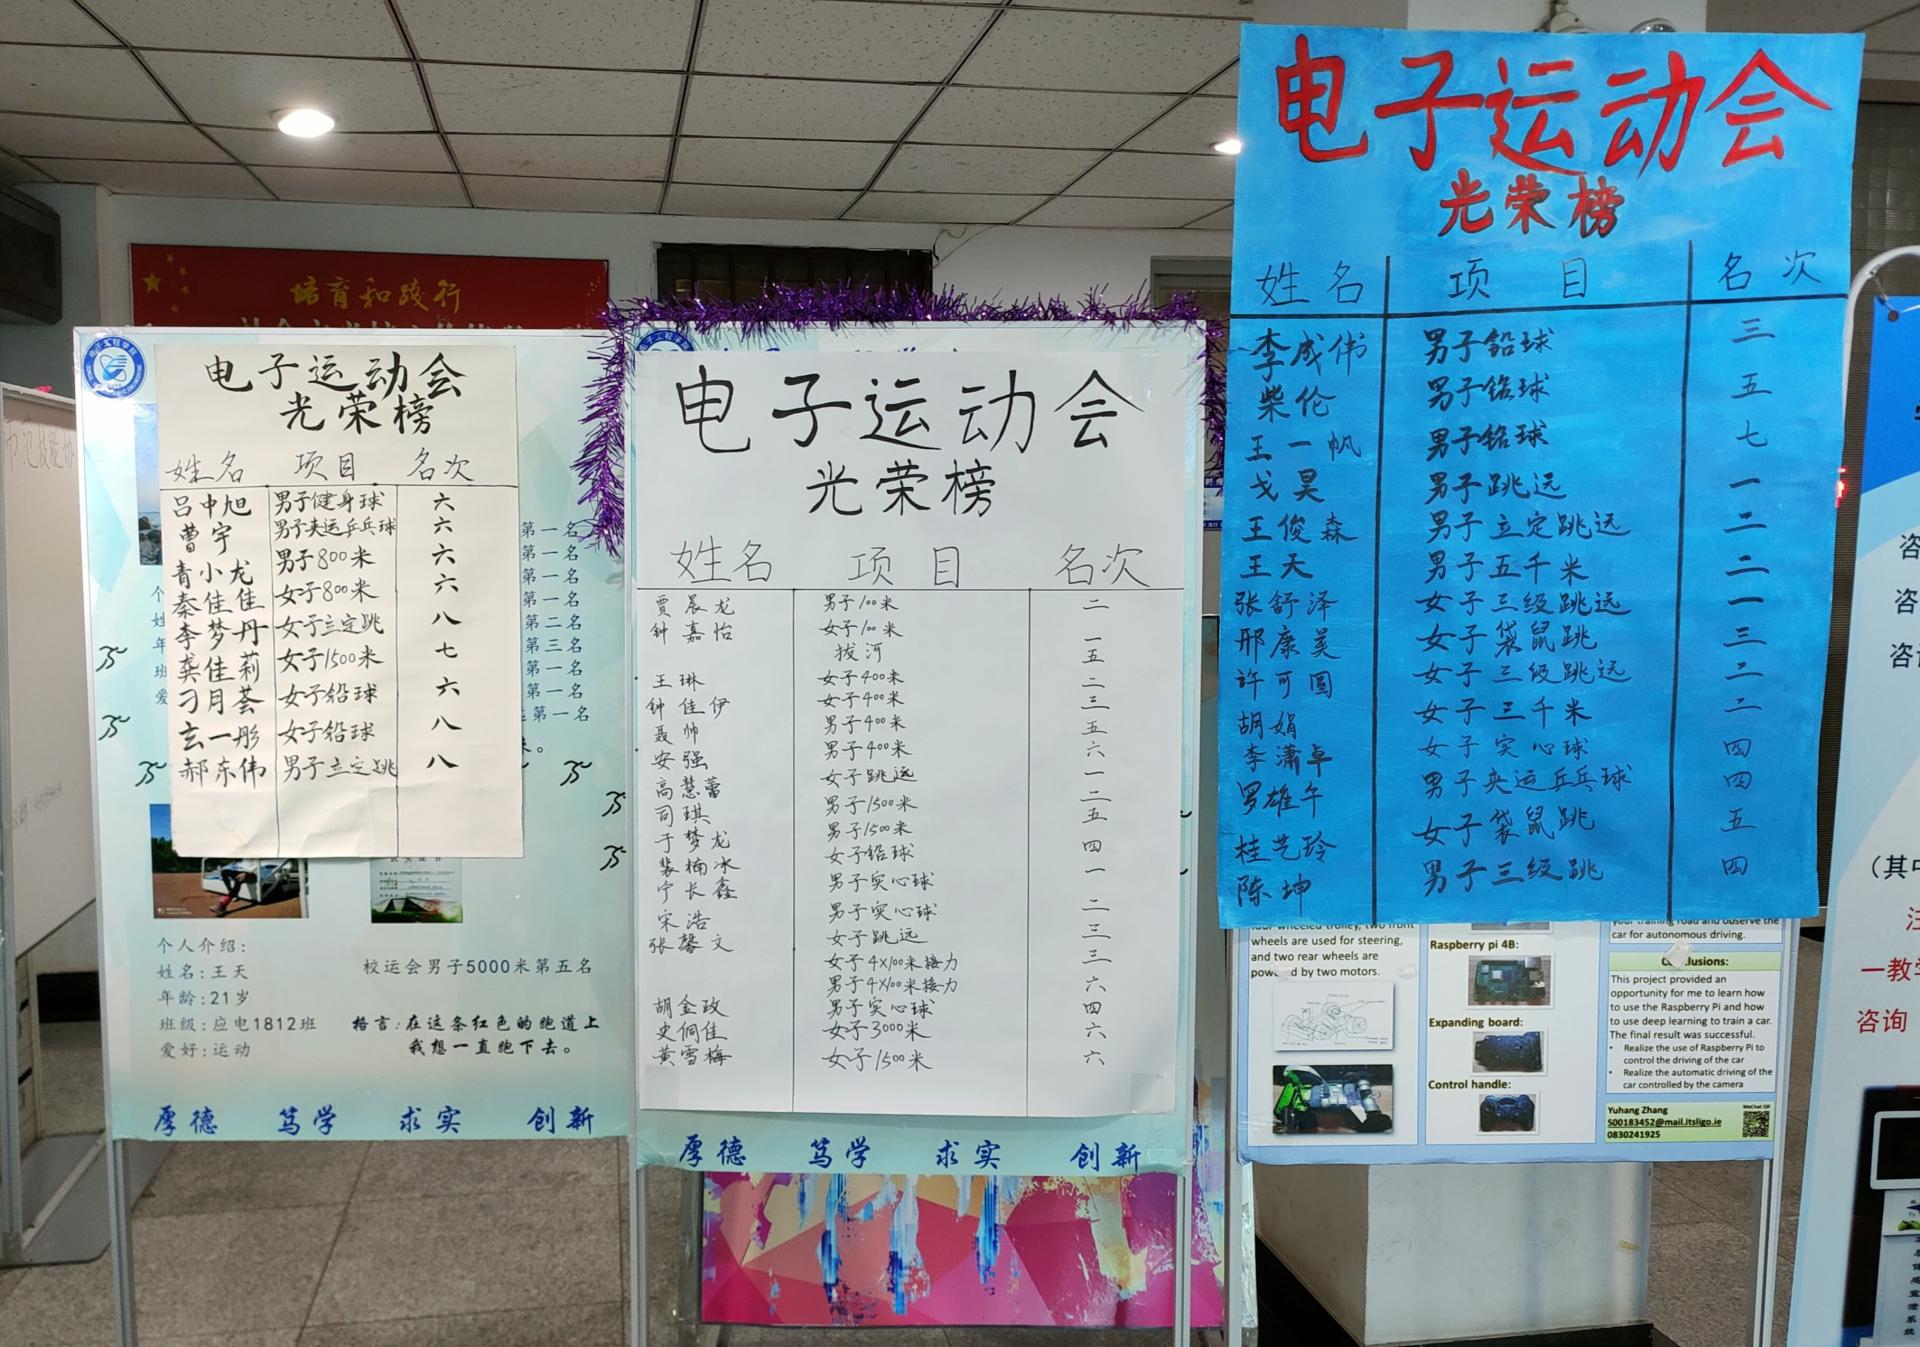 培育和践行
电子运动会
光荣榜
姓名 项目 名次
吕中旭 男子健身球 六
曹宇 男子夹运乒乓球 六
青小龙 男子800米 六
秦佳佳 女子800米 六
李梦丹 女子立定跳 八
龚佳莉 女子1500米 七
刁月荟 女子铅球 六
玄一彤 女子铅球 八
郝东伟 男子立定跳 八
第一名
第一名
第一名
第一名
第二名
第三名
第一名
第一名
第一名
个人介绍:
姓名:王天
年龄:21岁
班级:应电1812班
爱好:运动
校运会男子5000米第五名
格言:在这条红色的跑道上
我想一直跑下去。
厚德 笃学 求实 创新
电子运动会
光荣榜
姓名 项目 名次
贾晨龙 男子100米 二
钟嘉怡 女子100米 一
拔河 五
王琳 女子400米 二
钟佳伊 女子400米 三
聂帅 男子400米 五
安强 男子400米 六
高慧蕾 女子跳远 一
司琪 男子1500米 二
于梦龙 男子1500米 五
裴楠冰 女子铅球 四
宁长鑫 男子实心球 一
宋浩 男子实心球 二
张馨文 女子跳远 三
女子4X100米接力 三
男子4X100米接力 六
胡金政 男子实心球 四
史侗佳 女子3000米 六
黄雪梅 女子1500米 六
厚德 笃学 求实 创新
电子运动会
光荣榜
姓名 项目 名次
李成伟 男子铅球 三
柴伦 男子铅球 五
王一帆 男子铅球 七
戈昊 男子跳远 一
王俊森 男子立定跳远 二
王天 男子五千米 二
张舒泽 女子三级跳远 一
邢康美 女子袋鼠跳 三
许可圆 女子三级跳远 二
胡娟 女子三千米 二
李潇卓 女子实心球 四
罗雄午 男子夹运乒乓球 四
桂艺玲 女子袋鼠跳 五
陈坤 男子三级跳 四
wheels are used for steering,
and two rear wheels are
powered by two motors.
Raspberry pi 4B:
Expanding board:
Control handle:
your training road and observe the
car for autonomous driving.
Conclusions:
This project provided an
opportunity for me to learn how
to use the Raspberry Pi and how
to use deep learning to train a car.
The final result was successful.
• Realize the use of Raspberry Pi to
control the driving of the car
• Realize the automatic driving of the
car controlled by the camera
Yuhang Zhang
S00183452@mail.itsligo.ie
0830241925
WeChat QR
咨
咨
咨询
(其中
注
一教学
咨询